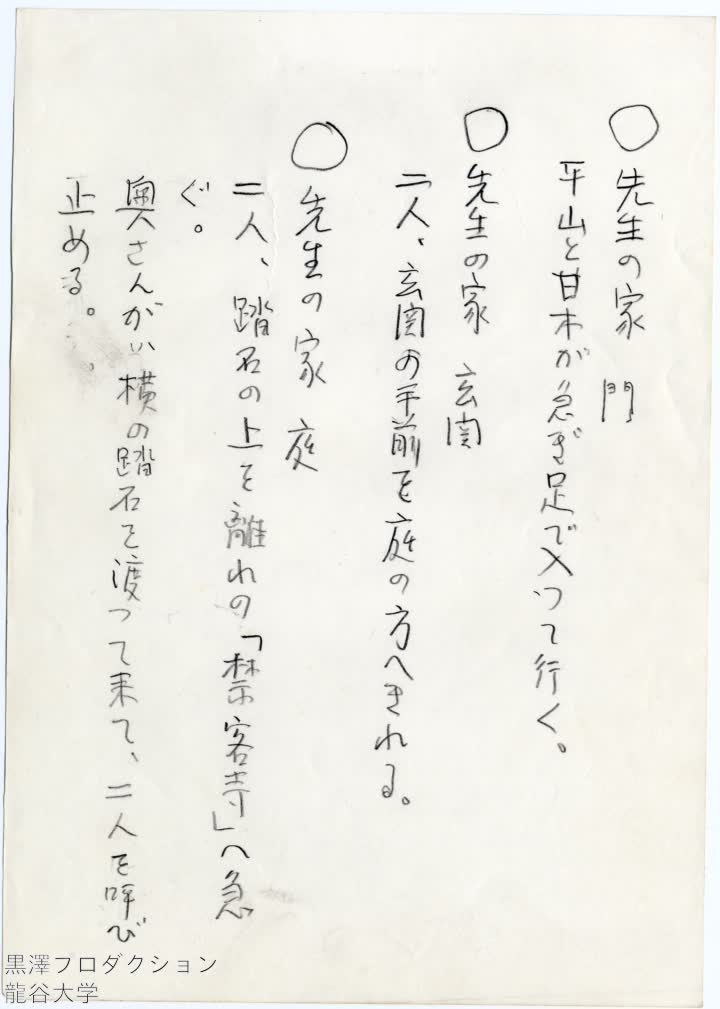 ○先生の家　門
平山と甘木が急ぎ足で入つて行く。
○先生の家　玄関
二人、玄関の手前を庭の方へきれる。
○先生の家　庭
二人、踏石の上を離れの「禁客寺」へ急
ぐ。
奥さんが、横の踏石を渡つて来て、二人を呼び
止める。
黒澤プロダクション
龍谷大学